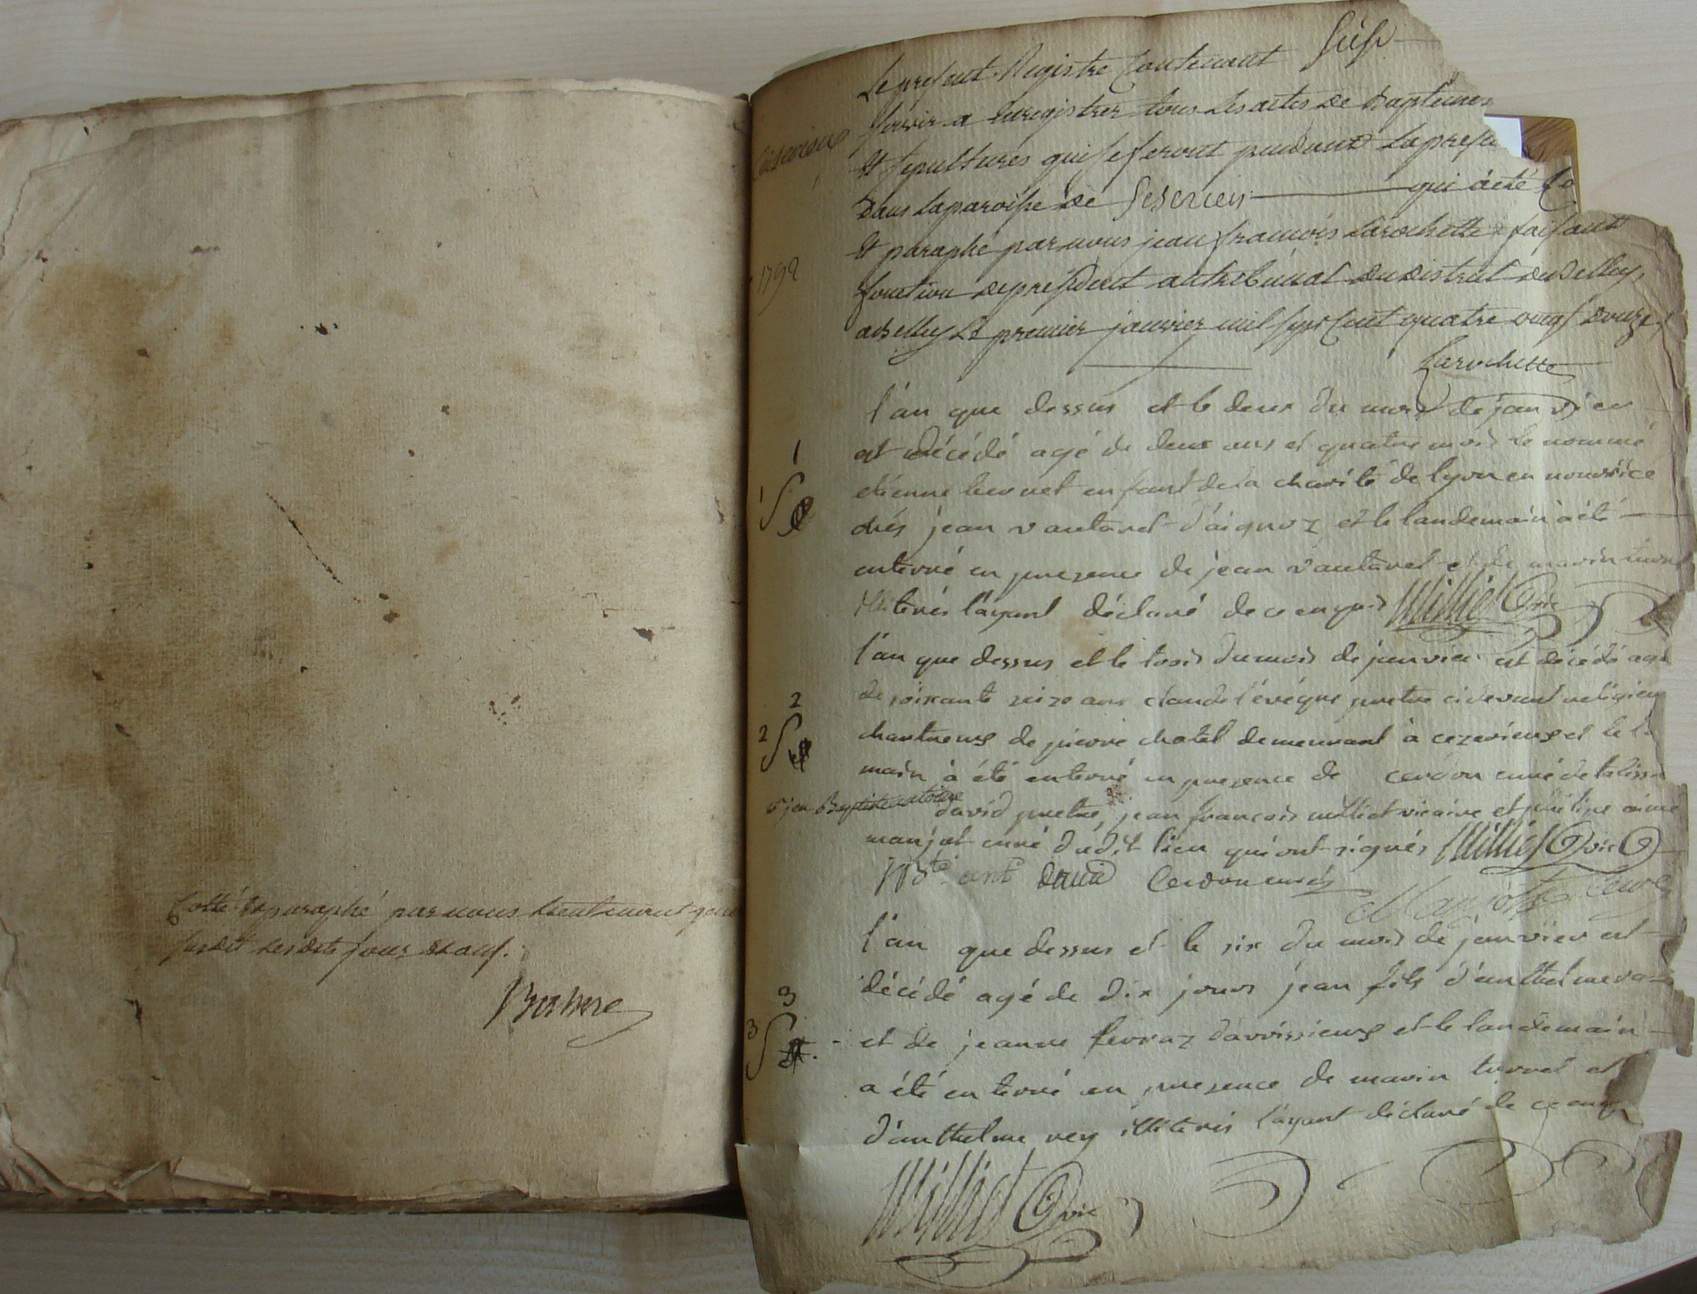 Cotté et paraphé par nous Lieutenant
susdit lesdits jour et an.
Le present Registre Contenant
servir a Enregistrer tous les actes de Baptemes
Et sepultures qui se feront pendant la prese
dans la paroisse de Seserieu qui a eté Co
Et paraphé par nous jean francois Larochette faisant
fonction de president au tribunal du district de Belley
a Belley Le premier janvier mil sept Cent quatre vingt douze
1792
Larochette
l'an que dessus et le deux du mois de janvier
1
est décédé agé de deux ans et quatre mois le nommé
etienne enfant de la charité de lyon en nourrice
1 S
chés jean vautaret d'aignoz et le landemain a été
enterré en presence de jean vautaret et de marin
illiterés l'ayant déclaré de ce enquis Milliet vic
l'an que dessus et le trois du mois de janvier est décédé agé
2
de soixante seize ans claude l'évéque pretre cidevant religieu
2 S
chartreux de pierre chatel demeurant à cezerieux et le l
main à été enterré en presence de cerdon curé de talissi
jean Baptiste antoine
david pretre, jean francois milliet vicaire et philipe aimé
manjot curé dudit lieu qui ont signés Milliet vic
ant david Cerdon curé Manjot Curé
l'an que dessus et le six du mois de janvier est
3
décédé agé de dix jours jean fils d'anthelme
3 S
et de jeanne ferraz d'avrissieux et le landemain
a été enterré en presence de marin turret et
d'anthelme rey illiterés l'ayant déclaré de ce enq
Milliet vic